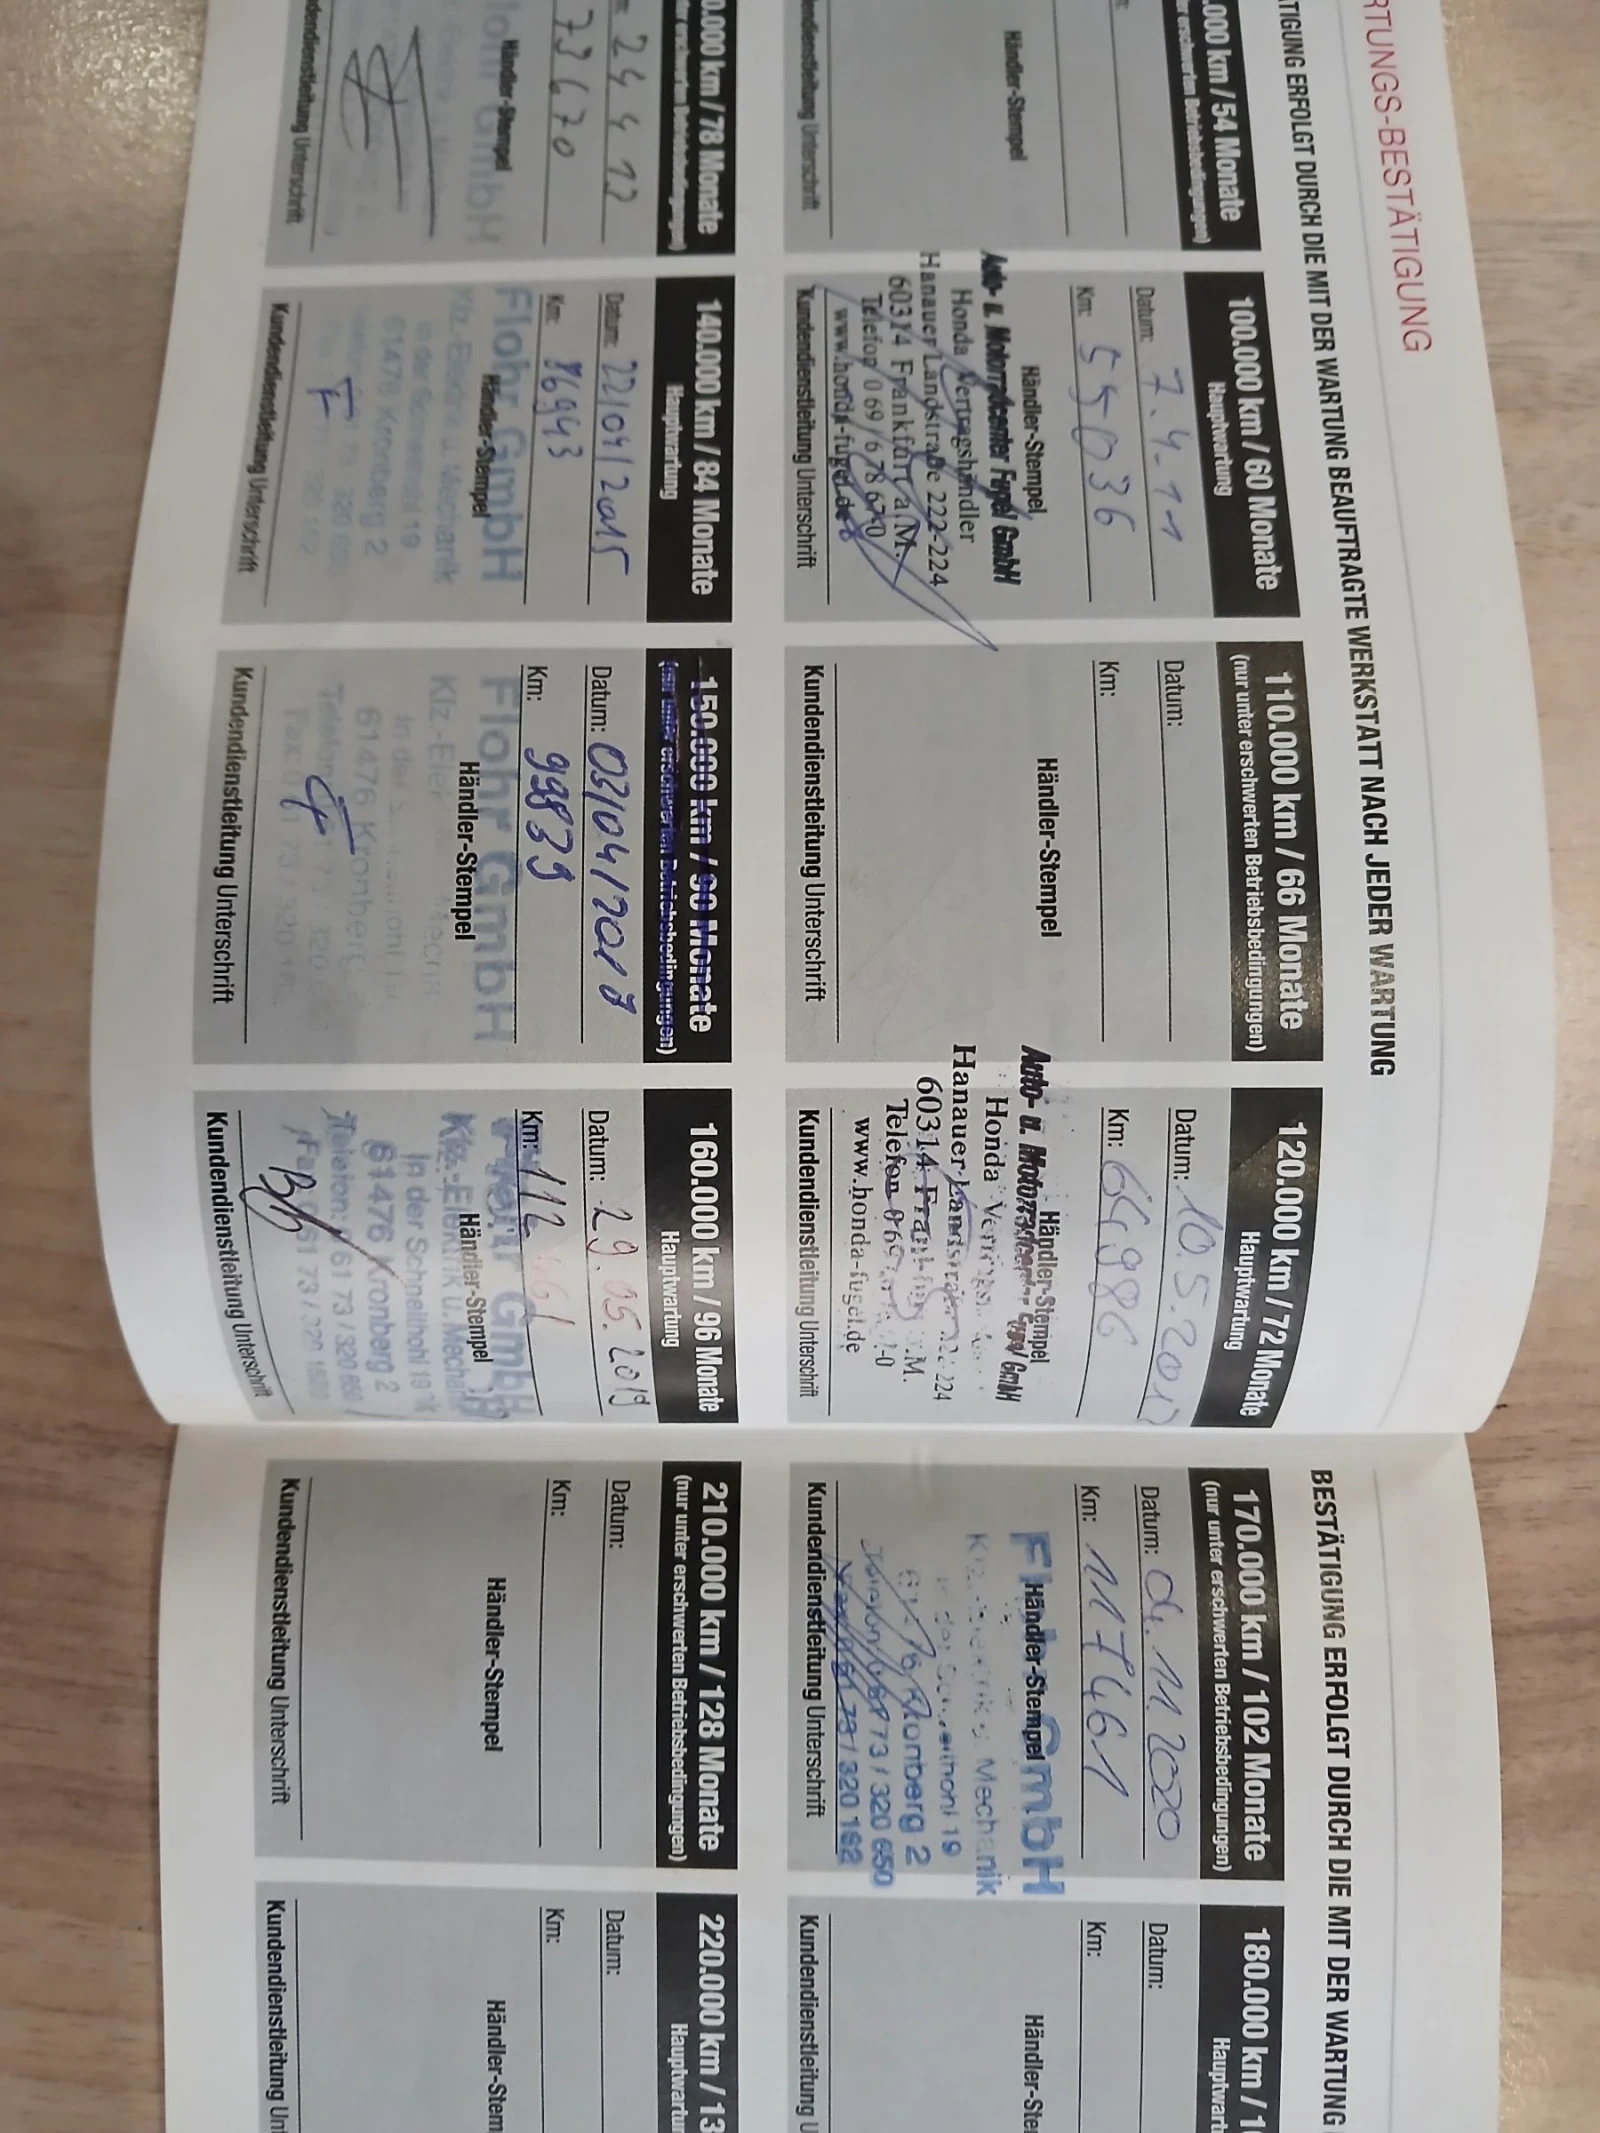 RTUNGS-BESTÄTIGUNG
TIGUNG ERFOLGT DURCH DIE MIT DER WARTUNG BEAUFTRAGTE WERKSTATT NACH JEDER WARTUNG
.000 km / 54 Monate
Händler-Stempel
Unterschrift
100.000 km / 60 Monate
Hauptwartung
Datum: 7.4.11
Km: 55036
Händler-Stempel
Auto- u. Motorradcenter Fügel GmbH
Honda Vertragshändler
Hanauer Landstraße 222-224
60314 Frankfurt a.M.
Telefon 069/678670
www.honda-fuegel.de
Kundendienstleitung Unterschrift
110.000 km / 66 Monate
(nur unter erschwerten Betriebsbedingungen)
Datum:
Km:
Händler-Stempel
Kundendienstleitung Unterschrift
120.000 km / 72 Monate
Hauptwartung
Datum: 10.5.2012
Km: 64986
Händler-Stempel
Auto- u. Motorradcenter Fügel GmbH
Honda
Hanauer Landstraße 222-224
60314
Telefon 069
www.honda-fuegel.de
Kundendienstleitung Unterschrift
0.000 km / 78 Monate
73670
Händler-Stempel
GmbH
Kundendienstleitung Unterschrift
140.000 km / 84 Monate
Hauptwartung
Datum: 22/04/2015
Km: 86943
Händler-Stempel
Flohr GmbH
Kfz.-Elektrik u. Mechanik
In der Schneithohl 19
61476 Kronberg 2
Kundendienstleitung Unterschrift
150.000 km / 90 Monate
(nur unter erschwerten Betriebsbedingungen)
Datum: 03/04/2017
Km: 99839
Händler-Stempel
Flohr GmbH
61476 Kronberg
Kundendienstleitung Unterschrift
160.000 km / 96 Monate
Hauptwartung
Datum: 29.05.2019
Km: 112
Händler-Stempel
Flohr GmbH
Kfz.-Elektrik u. Mechanik
In der Schneithohl 19
61476 Kronberg 2
Telefon: 0 61 73 / 320 650
Kundendienstleitung Unterschrift
BESTÄTIGUNG ERFOLGT DURCH DIE MIT DER WARTUNG
170.000 km / 102 Monate
(nur unter erschwerten Betriebsbedingungen)
Datum: 04.11.2020
Km: 117461
Händler-Stempel
Flohr GmbH
Mechanik
In der Schneithohl 19
Kronberg 2
73 / 320 650
73 / 320 162
Kundendienstleitung Unterschrift
180.000 km / 1
Hauptwart
Datum:
Km:
Händler-Ste
Kundendienstleitung U
210.000 km / 128 Monate
(nur unter erschwerten Betriebsbedingungen)
Datum:
Km:
Händler-Stempel
Kundendienstleitung Unterschrift
220.000 km / 13
Hauptwartu
Datum:
Km:
Händler-Stem
Kundendienstleitung Unt